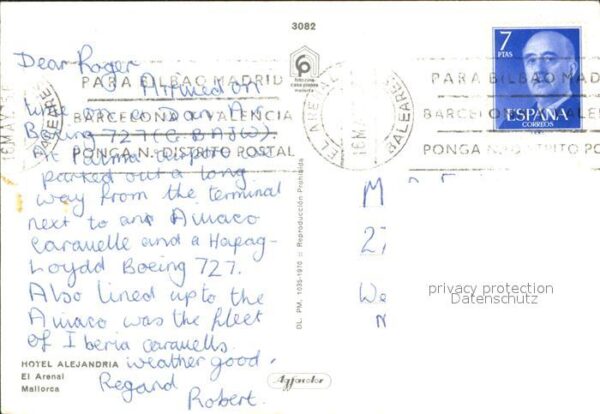 3082
Dear Roger
Arrived on
a Dan Air
Boeing 727 (G-BAJW)
At Palma airport we
parked out a long
way from the terminal
next to an Aviaco
caravelle and a Hapag-
Loydd Boeing 727.
Also lined up to the
Aviaco was the fleet
of Iberia caravells.
weather good.
Regard
Robert.
HOTEL ALEJANDRIA
El Arenal
Mallorca
PARA BILBAO MADRID
BARCELONA VALENCIA
PONGA N. DISTRITO POSTAL
EL ARENAL
BALEARES
16 MAY
7
PTAS
ESPAÑA
CORREOS
PARA BILBAO MAD
BARCELO VALEN
PONGA N. DISTRITO PO
DL. PM. 1035-1970 = Reproducción Prohibida
casa planas
Agfacolor
M
27
We
privacy protection
Datenschutz